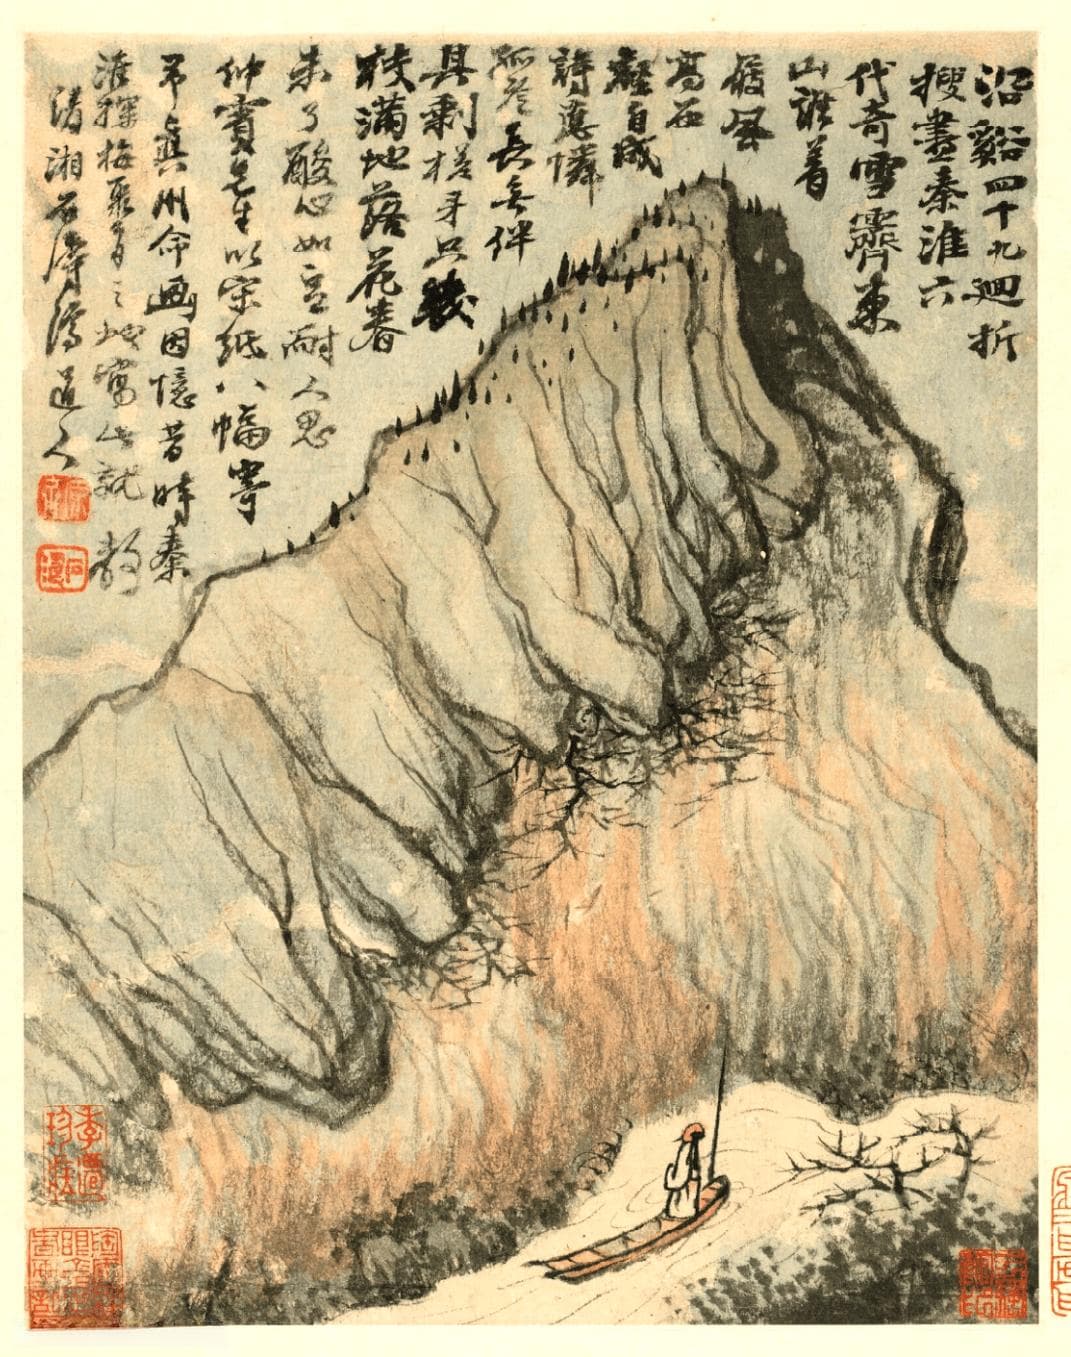 沿谿四十九迴折
搜盡秦淮六
代奇雪霽東
山誰着
屐風
高西
壑自成
詩應憐
孤冷長無伴
具剩槎牙只幾
枝滿地落花春
未了酸心如豆耐人思
仲賓先生以宋紙八幅寄
弔真州命画因憶昔時秦
淮探梅聚首之地寫此就教
清湘石濤濟道人
季遷
珍藏